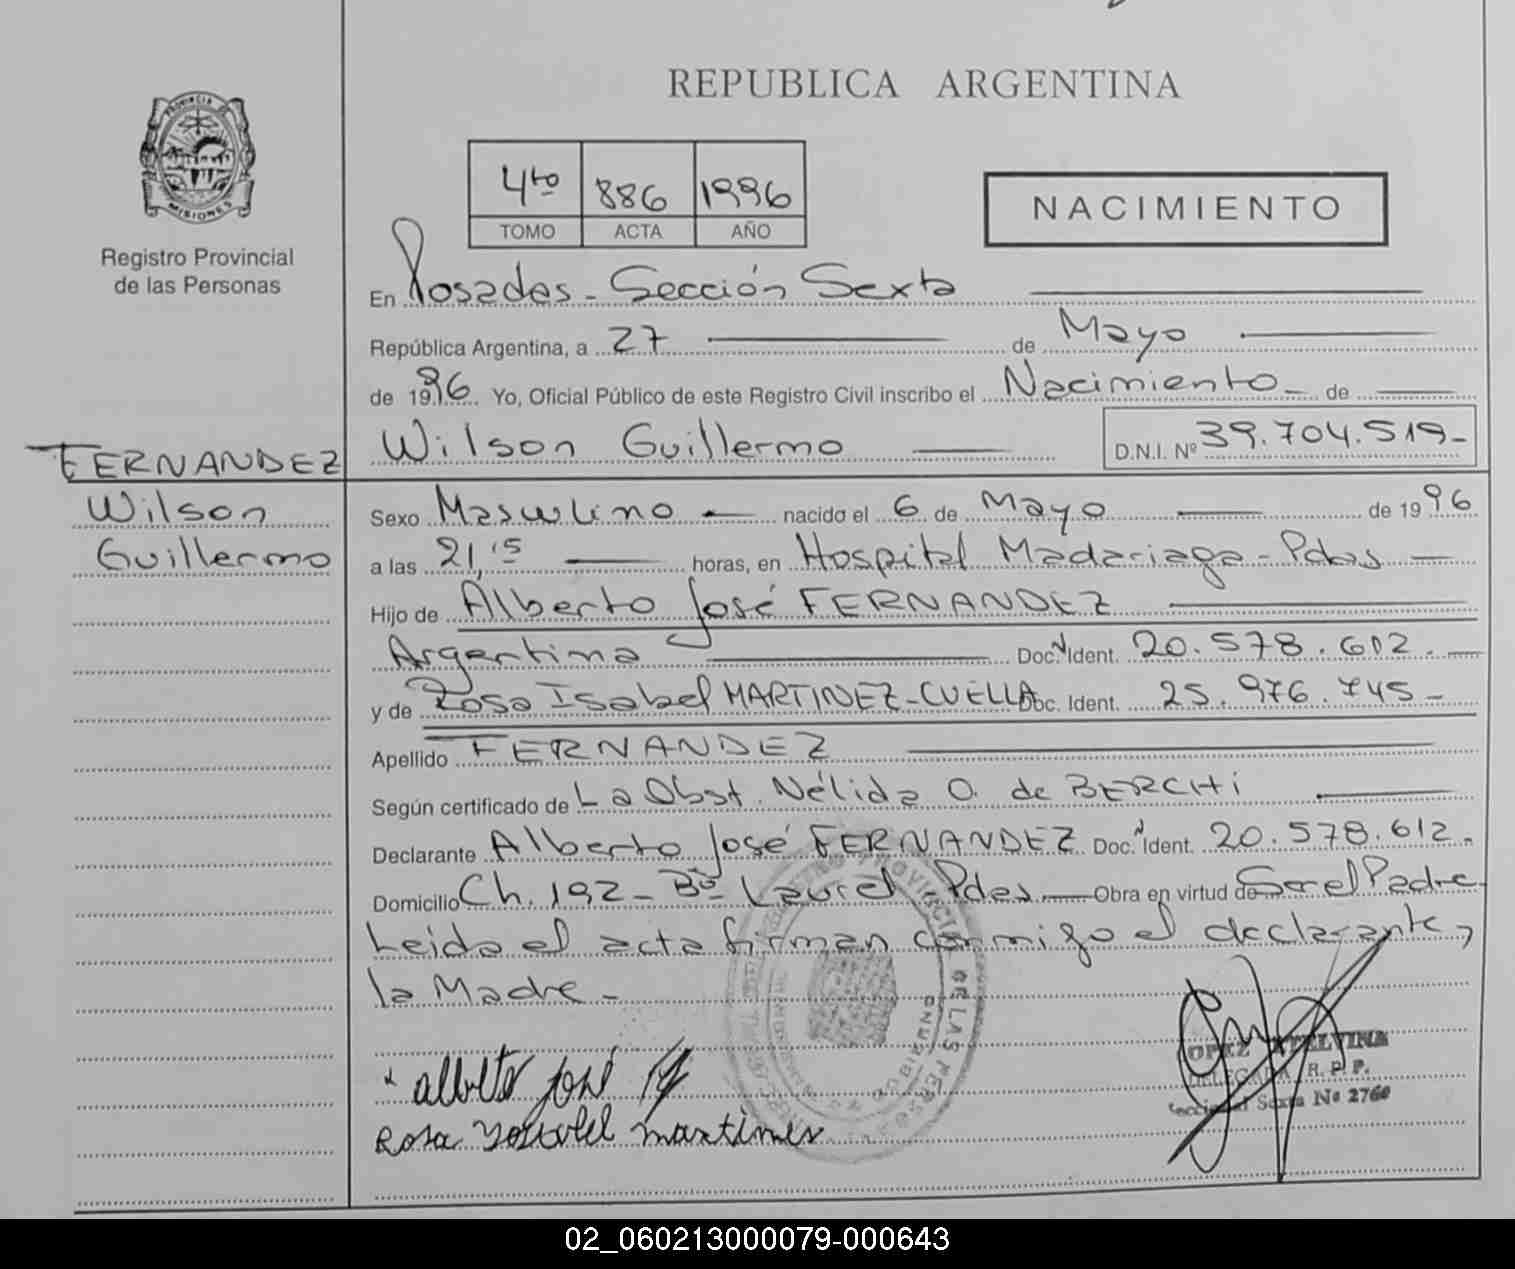 REPUBLICA ARGENTINA
PROVINCIA
MISIONES
Registro Provincial
de las Personas
4to 886 1996
TOMO ACTA AÑO
NACIMIENTO
En Posadas - Sección Sexta
República Argentina, a 27 de Mayo
de 1996. Yo, Oficial Público de este Registro Civil inscribo el Nacimiento - de
Wilson Guillermo D.N.I. Nº 39.704.519-
FERNANDEZ
Wilson
Guillermo
Sexo Masculino nacido el 6 de Mayo de 1996
a las 21,15 horas, en Hospital Madariaga - Pdas
Hijo de Alberto José FERNANDEZ
Argentina Doc. Ident. 20.578.612.
y de Rosa Isabel MARTINEZ-CUELLA Doc. Ident. 25.976.745-
Apellido FERNANDEZ
Según certificado de La Obst. Nélida O. de BERCHI
Declarante Alberto José FERNANDEZ Doc. Ident. 20.578.612.
Domicilio Ch. 192 - Bº Laurel Pdas Obra en virtud de Ser el Padre
Leida el acta firman conmigo el declarante,
la Madre -
alberto José
Rosa Ysabel martines
LOPEZ ETELVINA
DELEGADA R. P. P.
Seccional Sexta Nº 2760
02_060213000079-000643